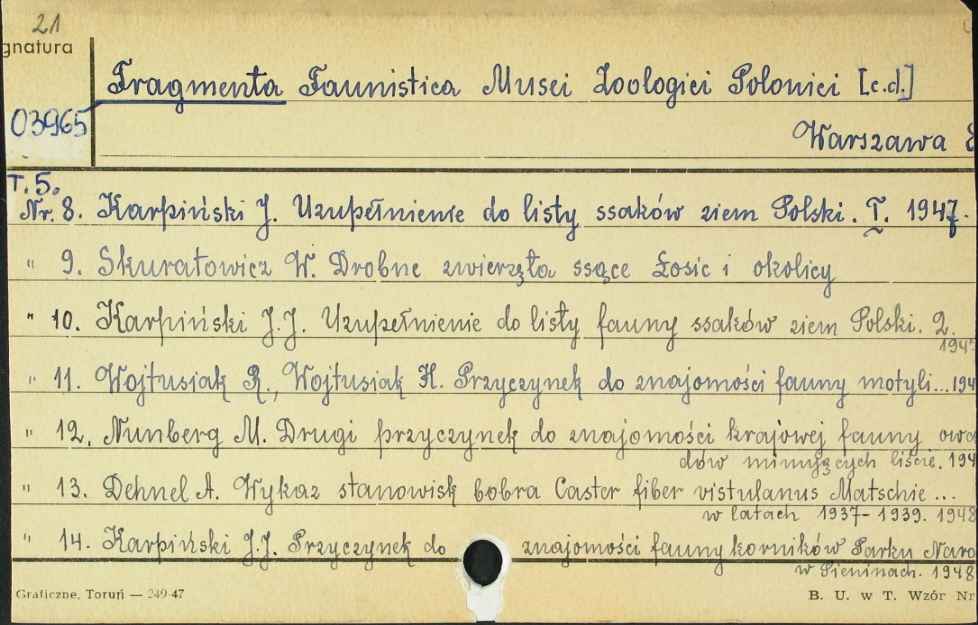 21
gnatura
Fragmenta Faunistica Musei Zoologici Polonici [c.d.]
03965
Warszawa
T. 5.
Nr. 8. Karpiński J. Uzupełnienie do listy ssaków ziem Polski. I. 1947.
" 9. Skuratowicz W. Drobne zwierzęta ssące Łosic i okolicy
" 10. Karpiński J.J. Uzupełnienie do listy fauny ssaków ziem Polski. 2.
194
" 11. Wojtusiak R., Wojtusiak H. Przyczynek do znajomości fauny motyli...194
" 12. Nunberg M. Drugi przyczynek do znajomości krajowej fauny owa
dów minujących liście. 194
" 13. Dehnel A. Wykaz stanowisk bobra Caster fiber vistulanus Matschie ...
w latach 1937-1939. 1948
" 14. Karpiński J.J. Przyczynek do znajomości fauny korników Parku Naro
w Pieninach. 1948
Graficzne, Toruń — 249-47
B. U. w T. Wzór Nr